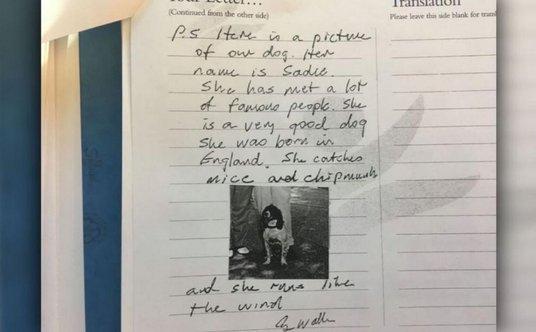 Your Letter...
(Continued from the other side)
Translation
Please leave this side blank for transl
P.S Here is a picture
of our dog. Her
name is Sadie.
She has met a lot
of famous people. She
is a very good dog
She was born in
England. She catches
mice and chipmunks
and she runs like
the wind